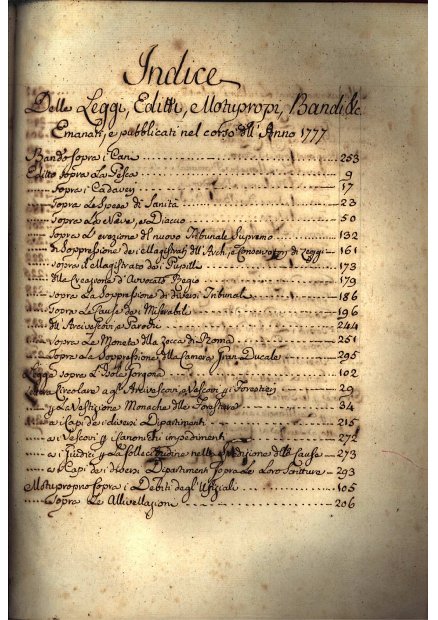 Indice
Delle Leggi, Editti, e Motupropi, Bandi &c.
Emanati, e pubblicati nel corso dell' Anno 1777
Bando sopra i Cani 253
Editto sopra la Pesca 9
sopra i Cadaveri 17
sopra le Spese di Sanità 23
sopra la Neve, e Diacco 50
sopra l'erezione del nuovo Tribunale Supremo 132
di Soppressione dei Magistrati dell' Arch. e Conservatori di Leggi 161
sopra il Magistrato dei Pupilli 173
della Creazione d'Avvocato Regio 179
sopra la Soppressione di diversi Tribunali 186
sopra le Cause dei Miserabili 196
di Arcivescovi, e Parochi 244
sopra le Monete della Zecca di Roma 251
sopra la Soppressione della Camera Gran Ducale 295
Legge sopra l'Isola Gorgona 102
Circolare a gl' Arcivescovi, e Vescovi Forestieri 29
la Vestizione Monache delle Forestiere 34
a Capi dei diversi Dipartimenti 215
a Vescovi Canonichi impedimenti 272
a i Giudici la Sollecitudine nella Spedizione delle Cause 273
a Capi dei diversi Dipartimenti sopra le Loro Scritture 293
Motuproprio sopra i Debiti degl' Ufiziali 105
sopra le Allivellazioni 206